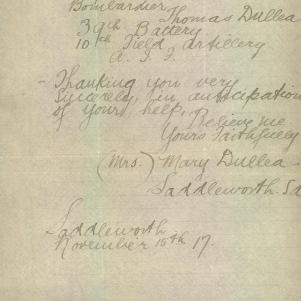 Bombardier Thomas Dullea
39th Battery
10th Field Artillery
A. I. F.
- Thanking you very
sincerely, in anticipation
of your help,
Believe me
Yours faithfully
(Mrs.) Mary Dullea -
Saddleworth. Sa
Saddleworth
November 15th 17.